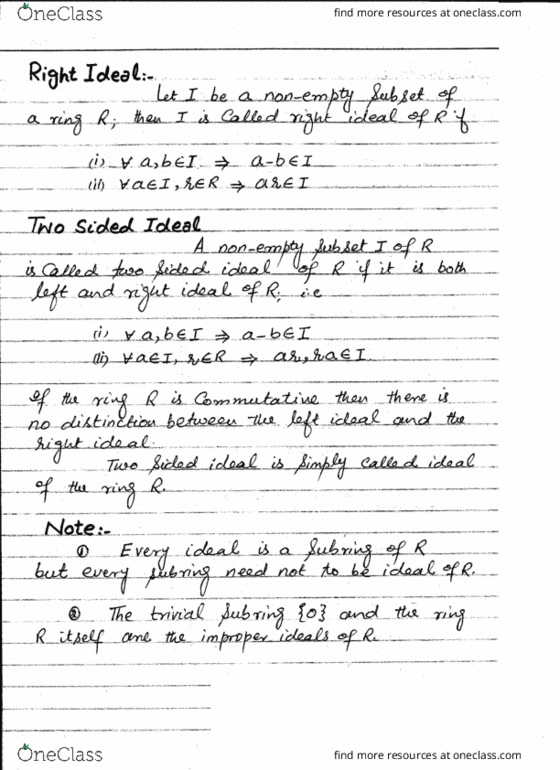 OneClass
find more resources at oneclass.com
Right Ideal:-
Let I be a non-empty Subset of
a ring R; then I is Called right ideal of R if
(i) ∀ a,b∈I ⇒ a-b∈I
(ii) ∀a∈I, r∈R ⇒ ar∈I
Two Sided Ideal
A non-empty Subset I of R
is Called two Sided ideal of R if it is both
left and right ideal of R; i.e
(i) ∀ a,b∈I ⇒ a-b∈I
(ii) ∀a∈I, r∈R ⇒ ar, ra∈I
If the ring R is Commutative then there is
no distinction between the left ideal and the
right ideal.
Two Sided ideal is Simply called ideal
of the ring R.
Note:-
① Every ideal is a Subring of R
but every Subring need not to be ideal of R.
② The trivial Subring {0} and the ring
R itself are the improper ideals of R.
OneClass
find more resources at oneclass.com